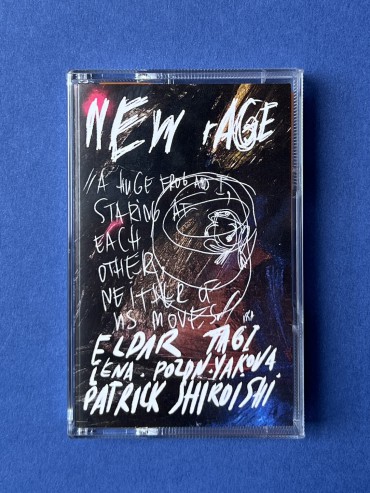 NEW rAGE
// A HUGE FROG AND I,
STARING AT
EACH
OTHER,
NEITHER OF
US MOVES//
ELDAR TAGI
LENA. POZDNYAKOVA.
PATRICK SHIROISHI.